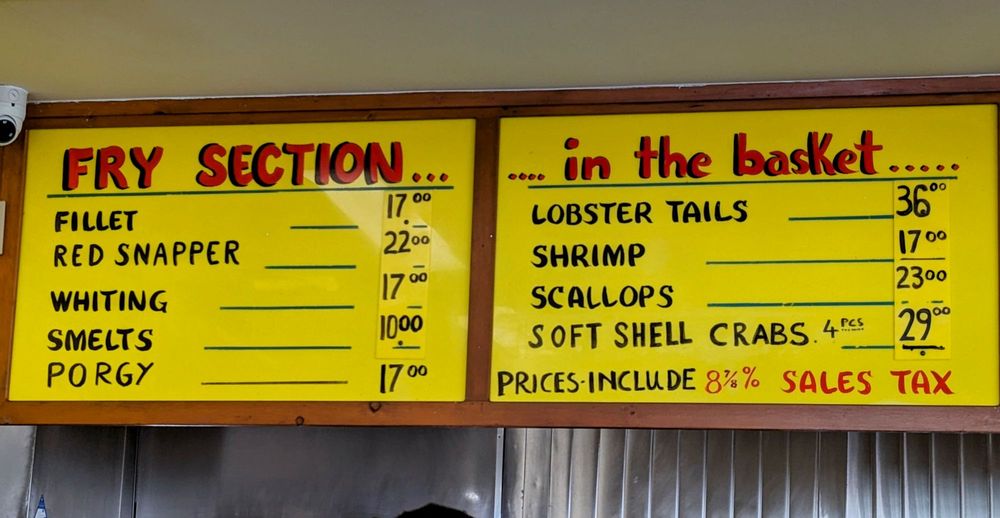 FRY SECTION...
FILLET 17.00
RED SNAPPER 22.00
WHITING 17.00
SMELTS 10.00
PORGY 17.00
.... in the basket.....
LOBSTER TAILS 36.00
SHRIMP 17.00
SCALLOPS 23.00
SOFT SHELL CRABS. 4 PCS 29.00
PRICES-INCLUDE 8⅞% SALES TAX